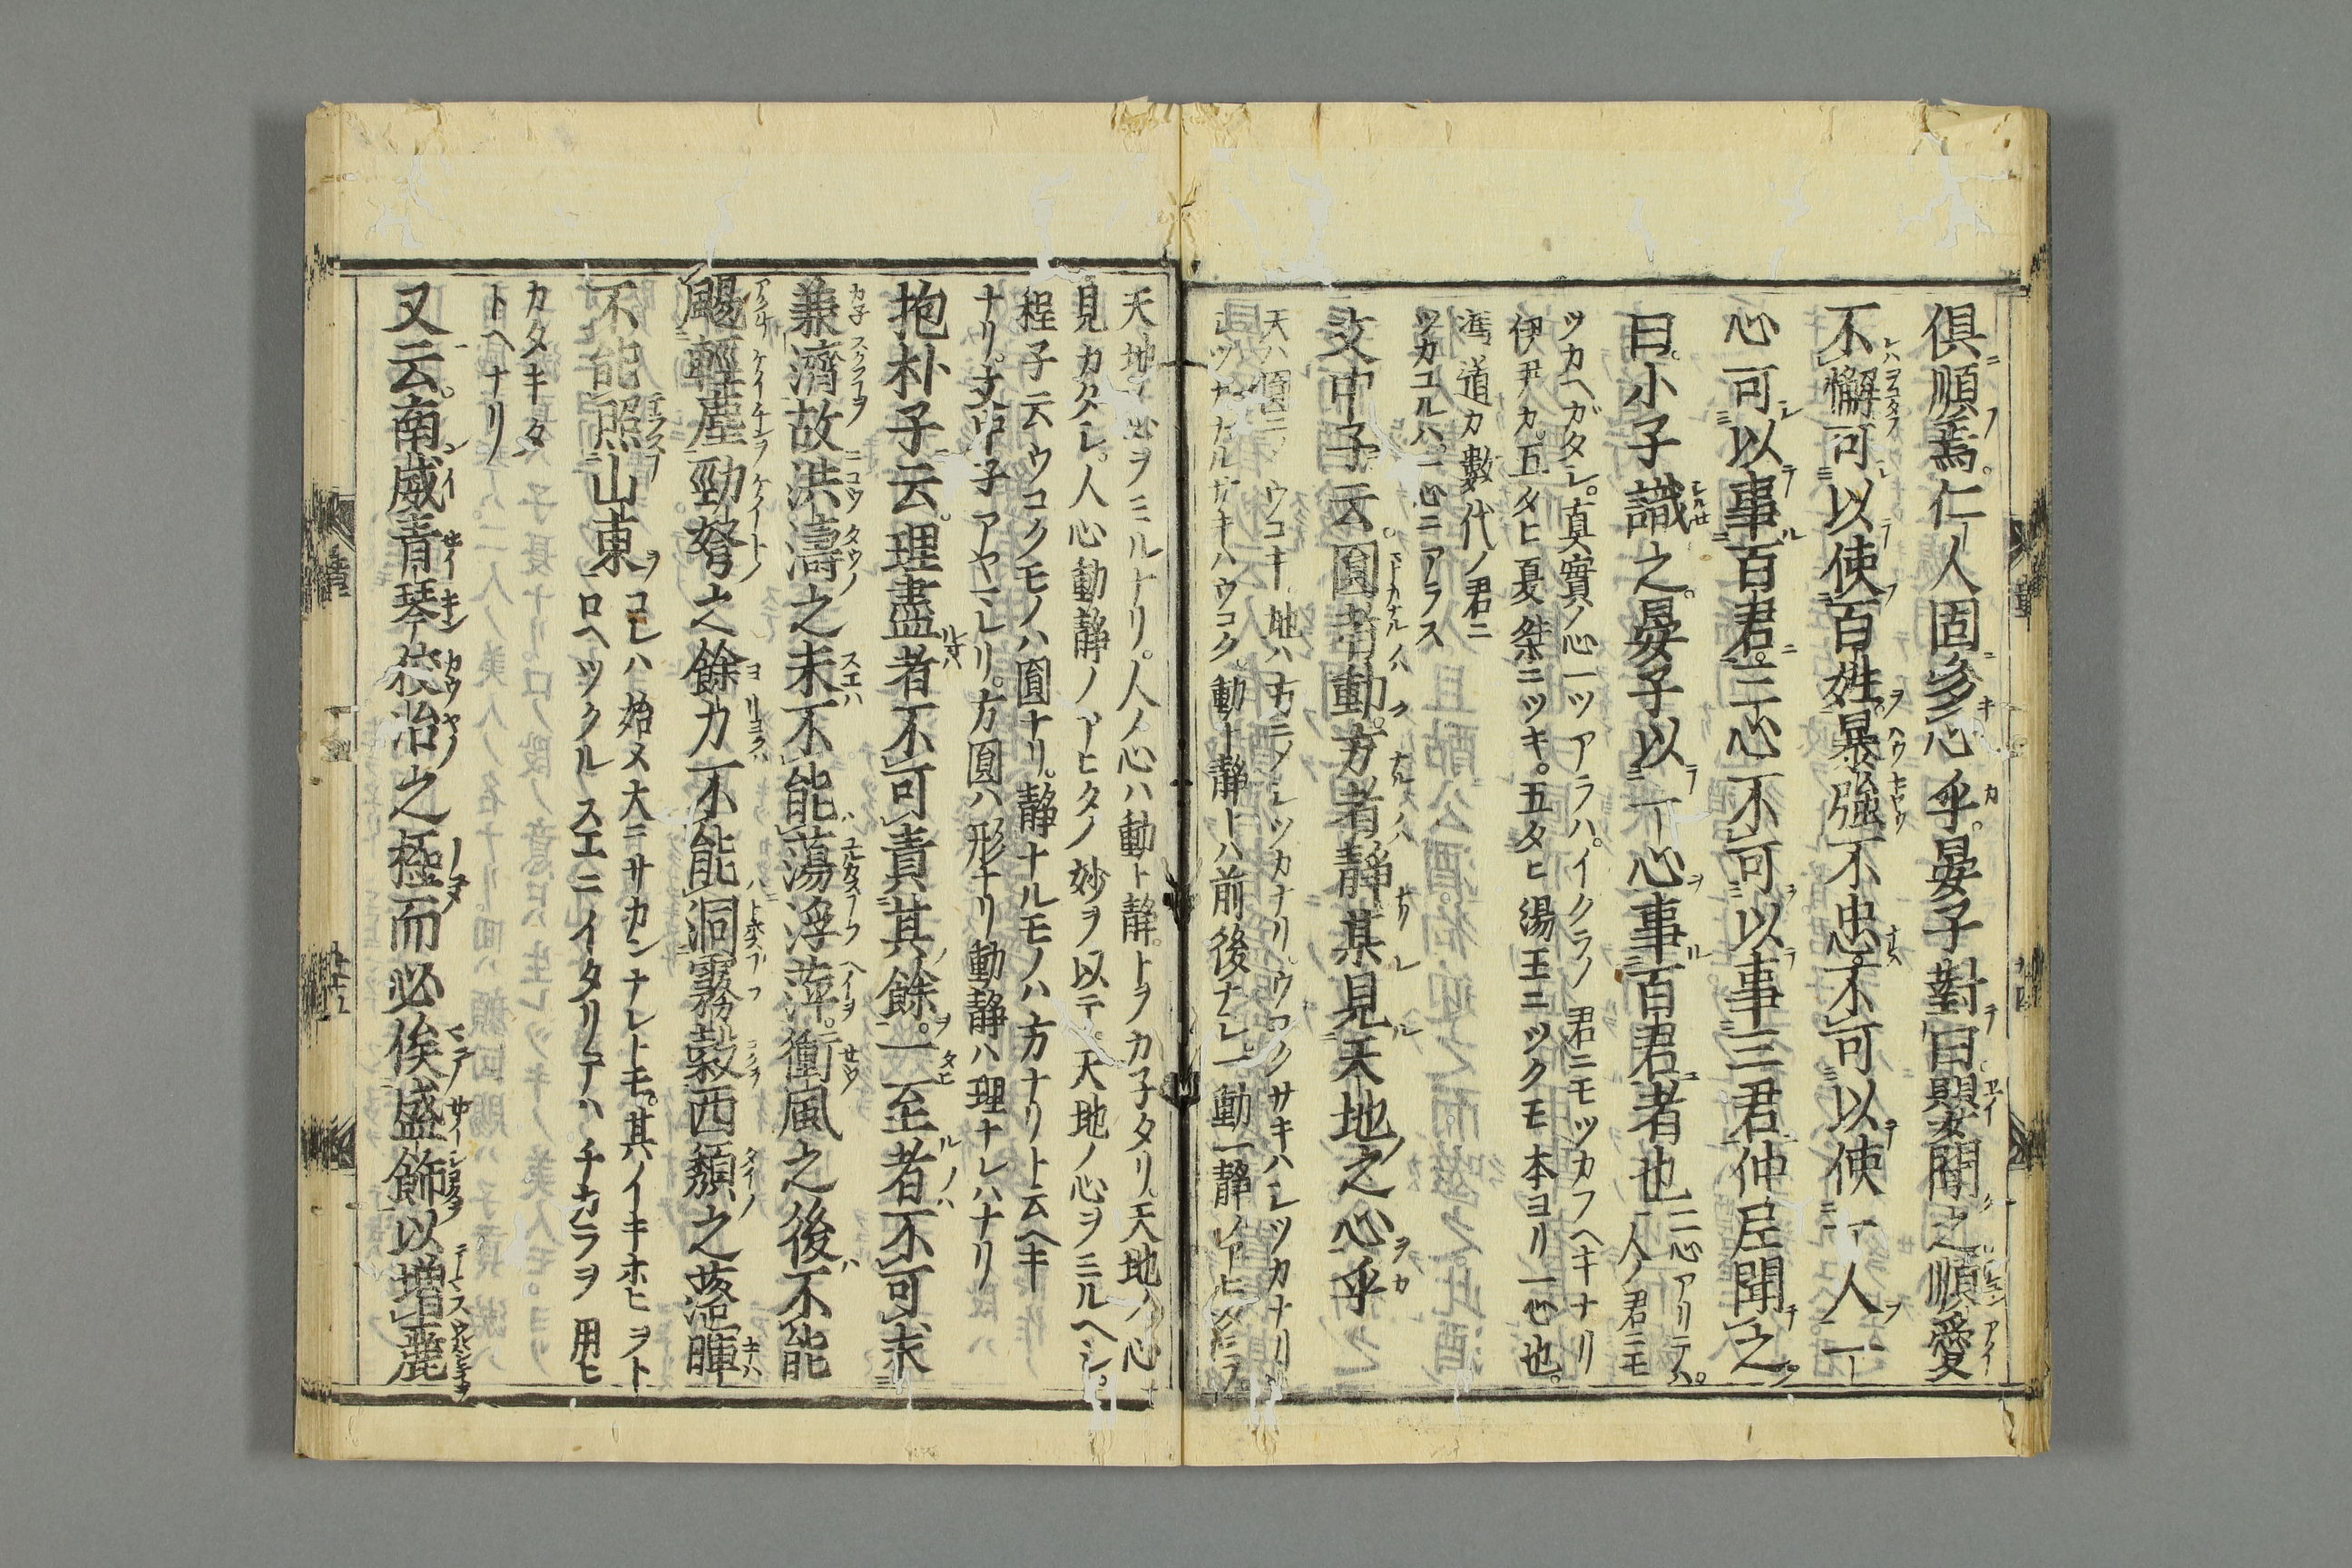 倶順焉。仁人固多心乎。晏子對曰嬰聞之順愛
不懈可以使百姓暴強不忠不可以使一人一
心可以事百君。三心不可以事三君仲尼聞之
曰。小子識之。晏子以一心事百君者也
二心アリテハ。
一人ノ君ニモ
ツカヘガタシ。真實ノ心一ツアラハ。イクラノ君ニモツカフヘキナリ
伊尹カ。五タヒ夏桀ニツキ。五タヒ湯王ニツクモ本ヨリ一心也。
馮道カ數代ノ君ニ
ツカユルハ。一心ニアラス
文中子云。圓者動。方者静其見天地之心乎
天ハ圓ニ〆ウコキ地ハ方ニ〆シツカナリ。ウコクサキハシツカナリ
シツカナルサキハウコク。動ト静トハ前後ナシ。一動一静ノアヒタニテ
天地ノ心ヲミルナリ。人ノ心ハ動ト静。トヲカ子タリ。天地ノ心
見カタシ。人心動静ノアヒタノ妙ヲ以テ。天地ノ心ヲミルヘシ。
程子云ウコクモノハ圓ナリ。静ナルモノハ方ナリト云ヘキ
ナリ。文中子アヤマレリ。方圓ハ形ナリ動静ハ理ナレハナリ
抱朴子云。理盡者不可責其餘。一至者不可求
兼濟故洪濤之末不能蕩浮萍。衝風之後不能
颺輕塵勁弩之餘力不能洞霧縠西頽之落暉
不能照山東
コレハ始メ大ニサカンナレトモ。其ノイキホヒヲト
ロヘツクルスエニイタリテハチカラヲ用ヒ
カタキタ
トヘナリ
又云。南威青琴姣冶之極而必俟盛飾以増麗